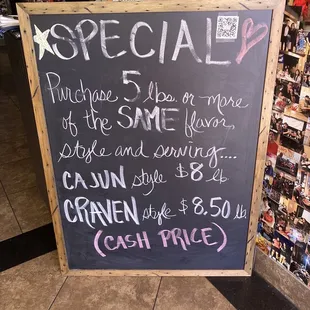 SPECIAL
Purchase 5 lbs. or more
of the SAME flavor,
style and serving....
CAJUN style $8 lb.
CRAVEN style $8.50 lb
(CASH PRICE)